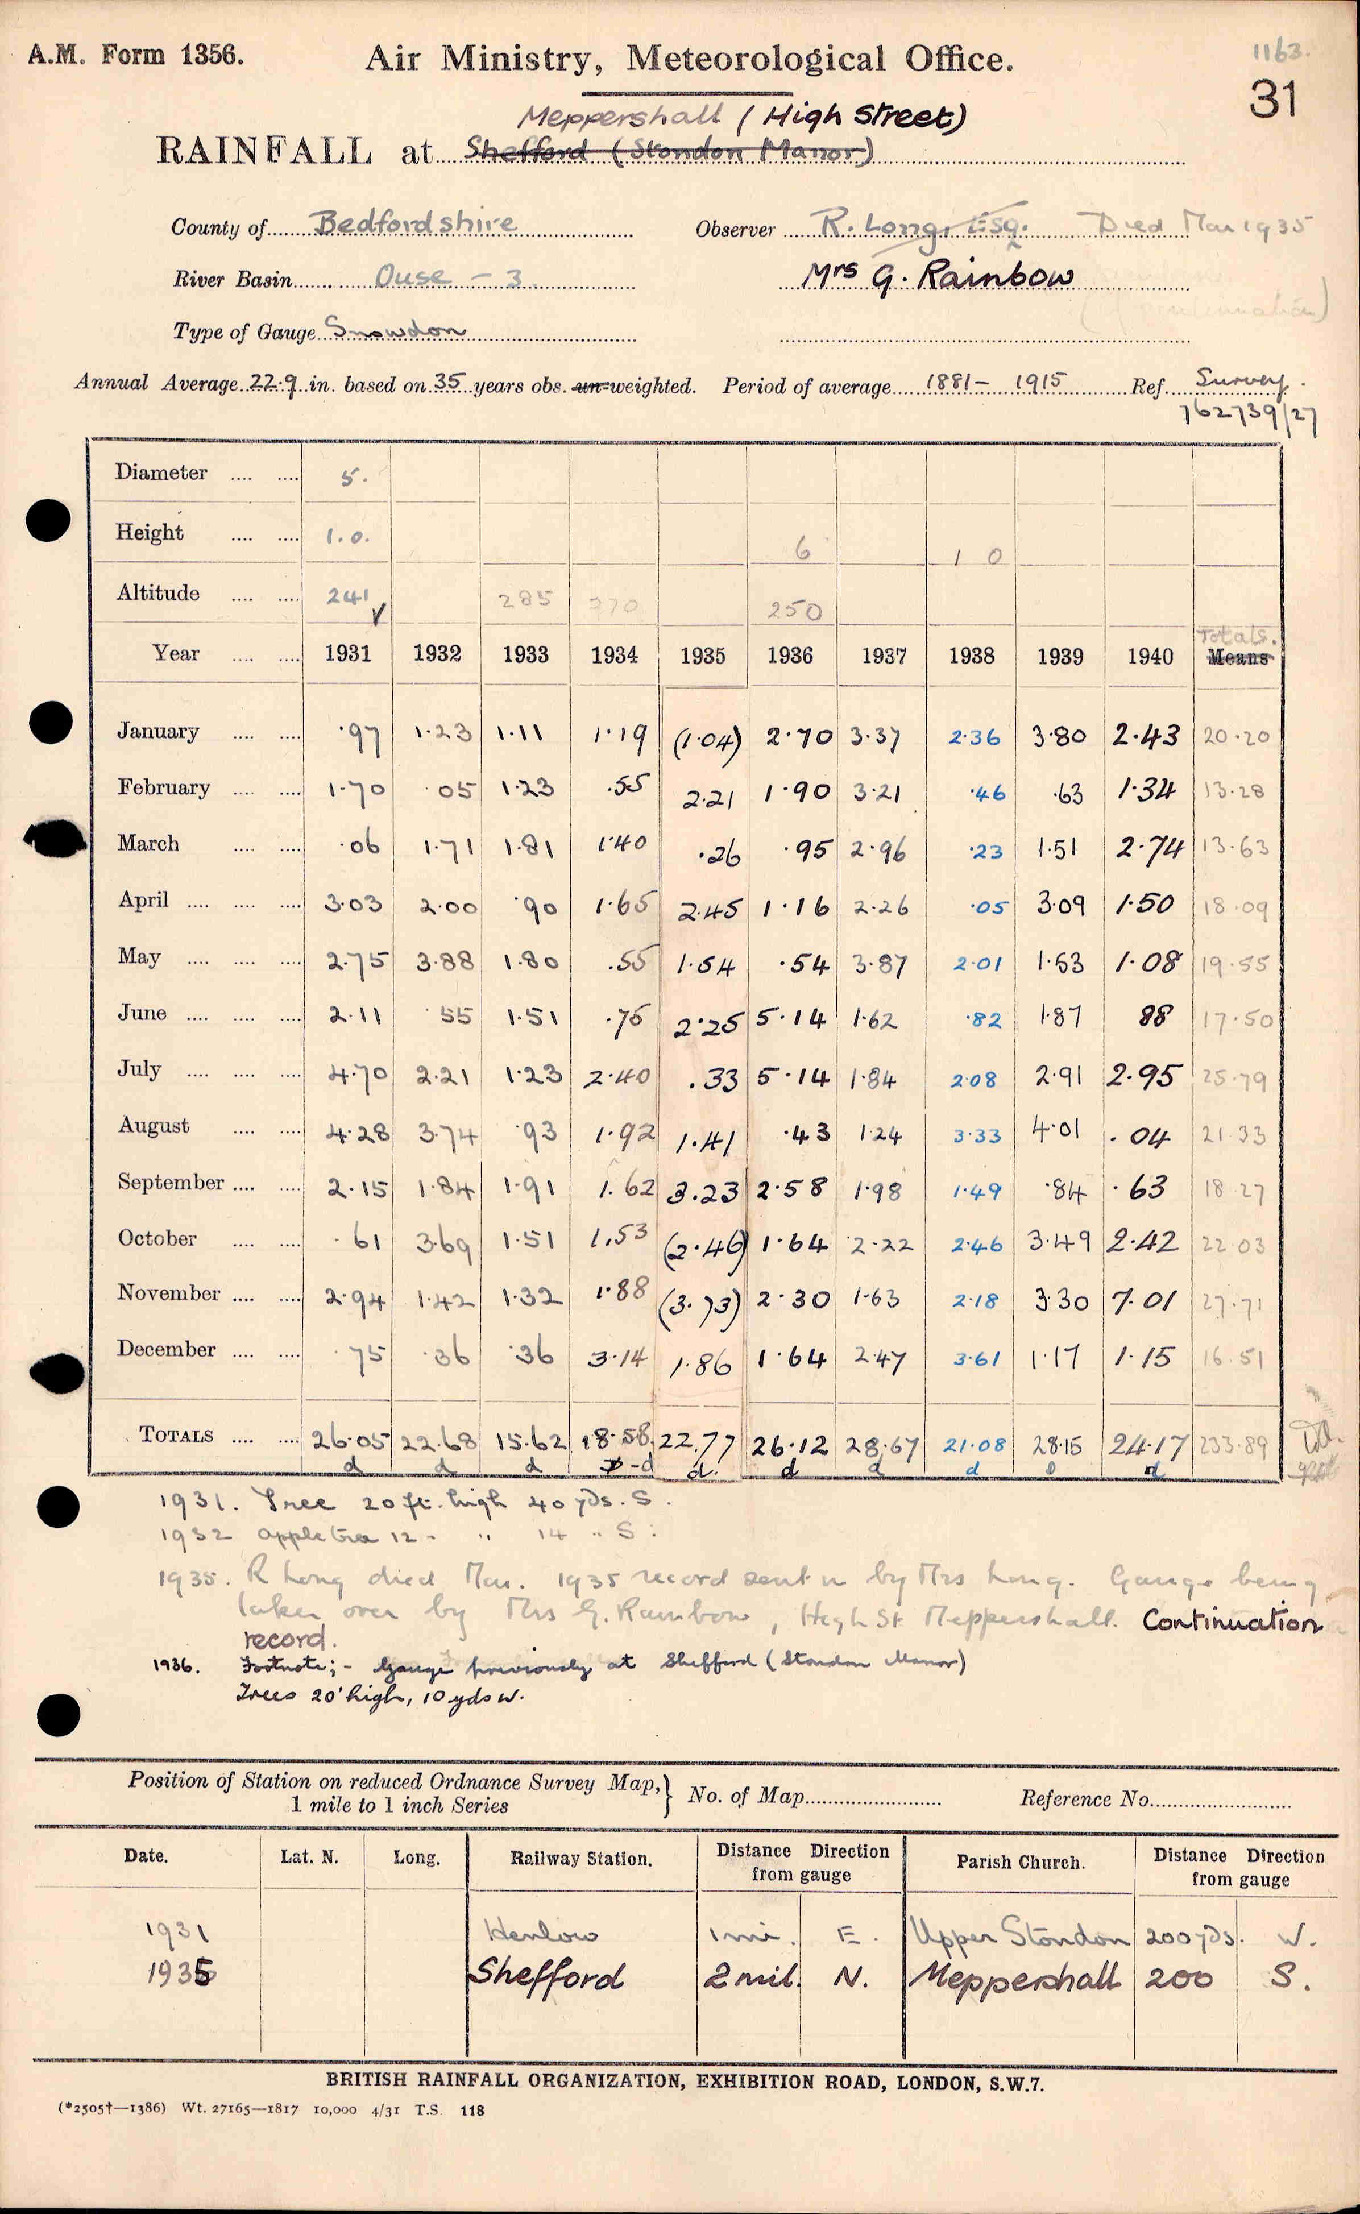 A.M. Form 1356.
Air Ministry, Meteorological Office.
1163.
31
Meppershall (High Street)
RAINFALL at Shefford (Stondon Manor)
County of Bedfordshire Observer R. Long, Esq. Died Mar 1935
River Basin Ouse - 3. Mrs G. Rainbow
Type of Gauge Snowdon
Annual Average 22.9 in. based on 35 years obs. un-weighted. Period of average 1881 - 1915 Ref. Survey.
762739/27
Diameter 5.
Height 1.0. 6 1 0
Altitude 241 285 270 250
Totals.
Year 1931 1932 1933 1934 1935 1936 1937 1938 1939 1940 Means
January ·97 1·23 1·11 1·19 (1·04) 2·70 3·37 2·36 3·80 2·43 20·20
February 1·70 ·05 1·23 ·55 2·21 1·90 3·21 ·46 ·63 1·34 13·28
March ·06 1·71 1·81 1·40 ·26 ·95 2·96 ·23 1·51 2·74 13·63
April 3·03 2·00 ·90 1·65 2·45 1·16 2·26 ·05 3·09 1·50 18·09
May 2·75 3·88 1·80 ·55 1·54 ·54 3·87 2·01 1·53 1·08 19·55
June 2·11 55 1·51 ·75 2·25 5·14 1·62 ·82 1·87 88 17·50
July 4·70 2·21 1·23 2·40 ·33 5·14 1·84 2·08 2·91 2·95 25·79
August 4·28 3·74 ·93 1·92 1·41 ·43 1·24 3·33 4·01 ·04 21·33
September 2·15 1·84 1·91 1·62 3·23 2·58 1·98 1·49 ·84 ·63 18·27
October ·61 3·69 1·51 1·53 (2·46) 1·64 2·22 2·46 3·49 2·42 22·03
November 2·94 1·42 1·32 1·88 (3·73) 2·30 1·63 2·18 3·30 7·01 27·71
December ·75 ·36 ·36 3·14 1·86 1·64 2·47 3·61 1·17 1·15 16·51
TOTALS 26·05 22·68 15·62 18·58 22.77 26·12 28·67 21·08 28·15 24·17 233·89
d d d d d d d d d
1931. Tree 20 ft. high 40 yds. S.
1932 apple tree 12 - " 14 " S.
1935. R Long died Mar. 1935 record sent in by Mrs Long. Gauge being
taken over by Mrs G. Rainbow, High St Meppershall. Continuation
record.
1936. Footnote; - Gauge previously at Shefford (Stondon Manor)
Trees 20' high, 10 yds W.
Position of Station on reduced Ordnance Survey Map,
1 mile to 1 inch Series } No. of Map Reference No.
Date. Lat. N. Long. Railway Station. Distance Direction from gauge Parish Church. Distance Direction from gauge
1931 Henlow 1 mi. E. Upper Stondon 200 yds. W.
1935 Shefford 2 mil. N. Meppershall 200 S.
BRITISH RAINFALL ORGANIZATION, EXHIBITION ROAD, LONDON, S.W.7.
(*2505†—1386) Wt. 27165—1817 10,000 4/31 T.S. 118